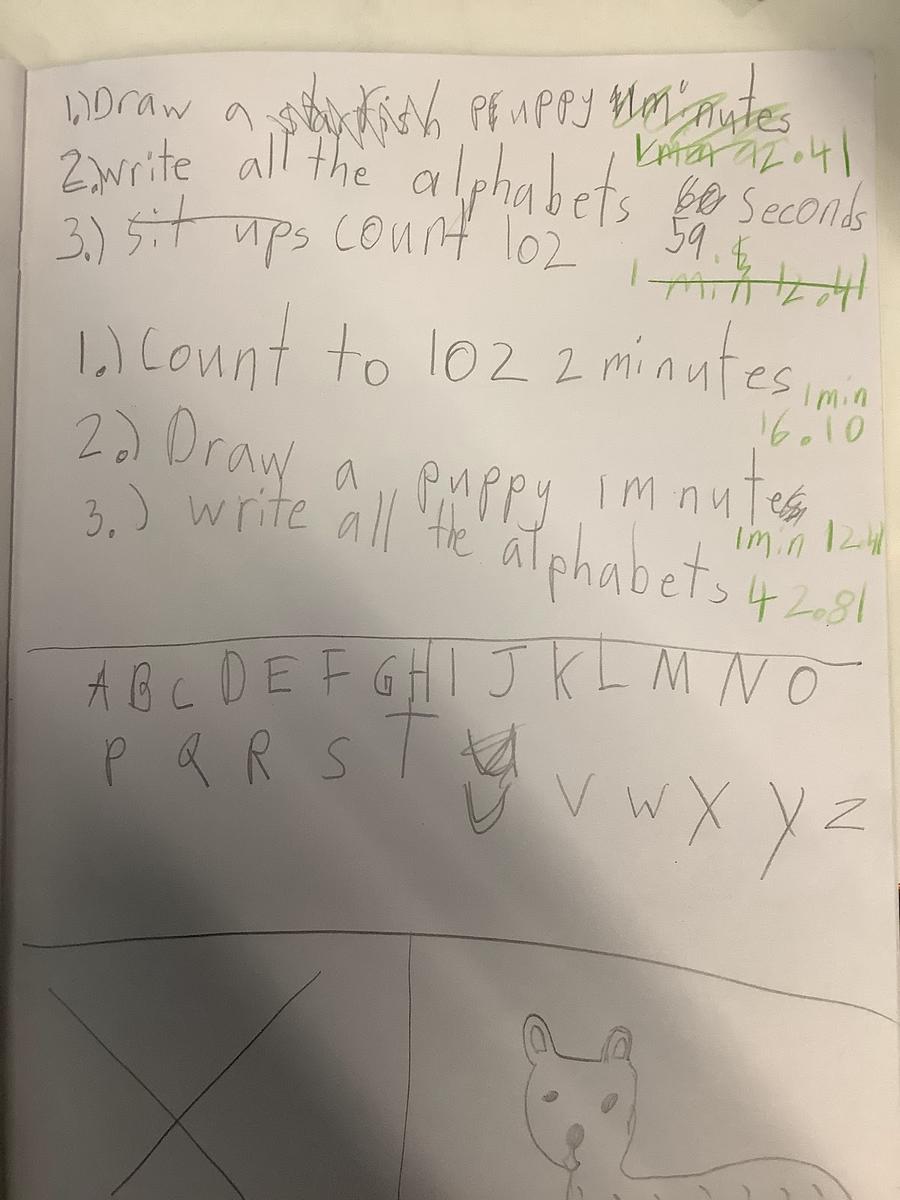 1.) Draw a starfish puppy minutes
1 min 12.41
2.) write all the alphabets 60 Seconds
59
3.) sit ups count 102
1 min 12.41
1.) Count to 102 2 minutes
1 min
16.10
2.) Draw a puppy 1 mnutes
1 min 12.41
3.) write all the alphabets
42.81
A B C D E F G H I J K L M N O
P Q R S T
U V W X Y Z